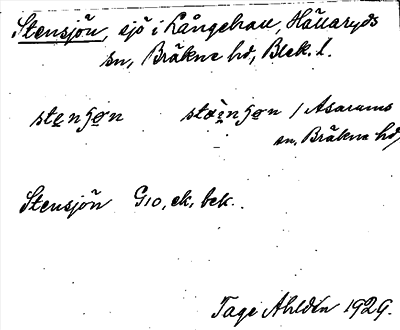 Stensjön, sjö i Långehall, Hällaryds
sn, Bräkne hd, Blek. l.
stengøn stæ̀ngøn / Asarums
sn, Bräkne hd,
Stensjön G10, ek, bek.
Tage Ahldén 1929.